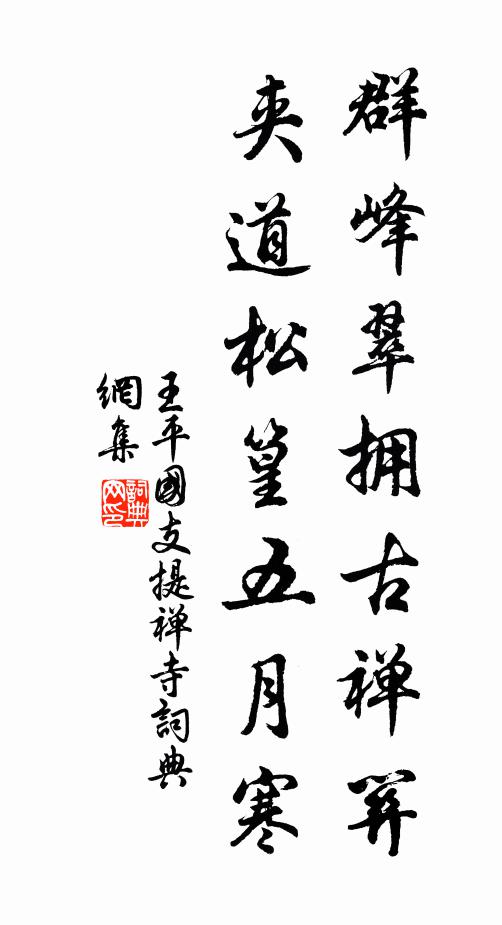 群峰翠拥古禅關
夾道松篁五月寒
王平國支提禅寺詞典
網集
詞典網印